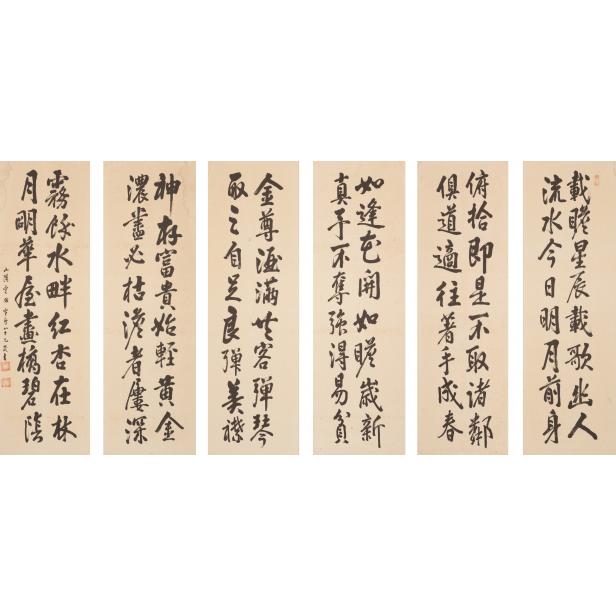 載瞻星辰載歌幽人
流水今日明月前身
俯拾即是不取諸鄰
俱道適往著手成春
如逢花開如瞻歲新
真予不奪強得易貧
金尊酒滿共客彈琴
取之自足良殫美襟
神存富貴始輕黃金
濃盡必枯淡者屢深
霧餘水畔紅杏在林
月明華屋畫橋碧陰